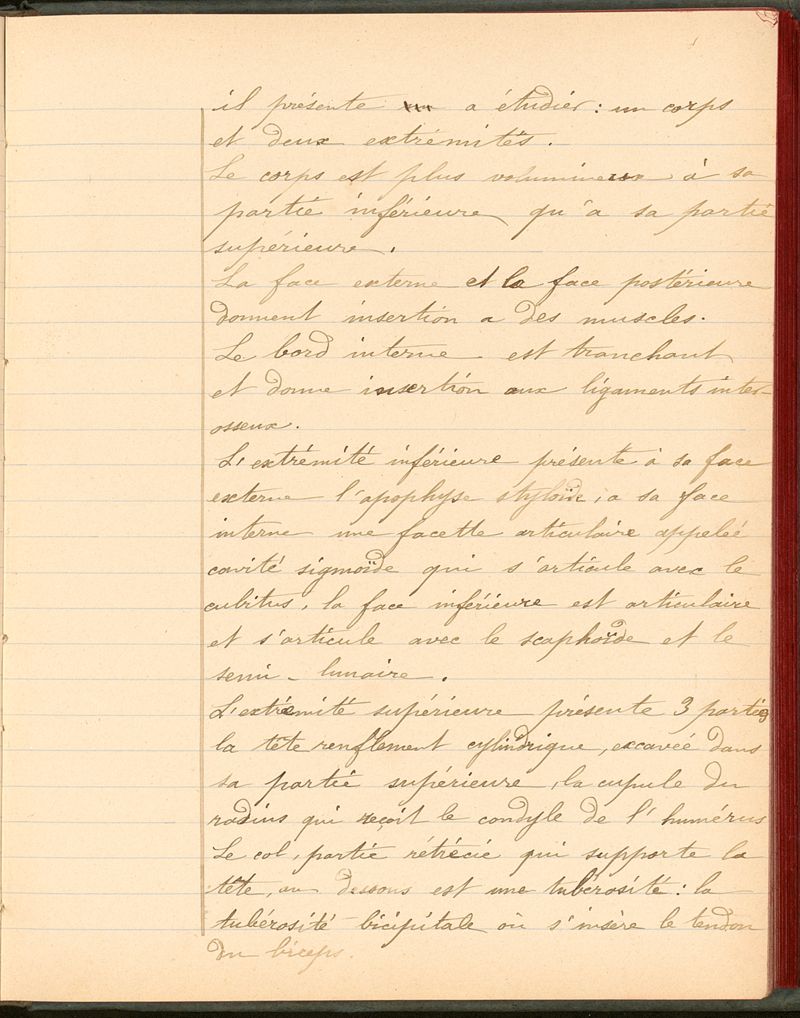 il présente a étudiér : un corps
et deux extrémités.
Le corps est plus volumineux à sa
partié inférieure qu'a sa partié
supérieure.
La face externe et la face postérieure
donnent insertion a des muscles.
Le bord interne est tranchant
et donne insertion aux ligaments inter-
osseux.
L'extrémité inférieure présente à sa face
externe l'apophyse styloïde, a sa face
interne une facette articulaire appeleé
cavité sigmoïde qui s'articule avec le
cubitus, la face inférieure est articulaire
et s'articule avec le scaphoïde et le
semi-lunaire.
L'extrémité supérieure présente 3 parties
la tête renflement cylindrique, excaveé dans
sa partié supérieure, la cupule du
radius qui reçoit le condyle de l'humérus
Le col, partie rétrécié qui supporte la
tête, au dessous est une tubérosité : la
tubérosité bicipitale où s'insère le tendon
du biceps.